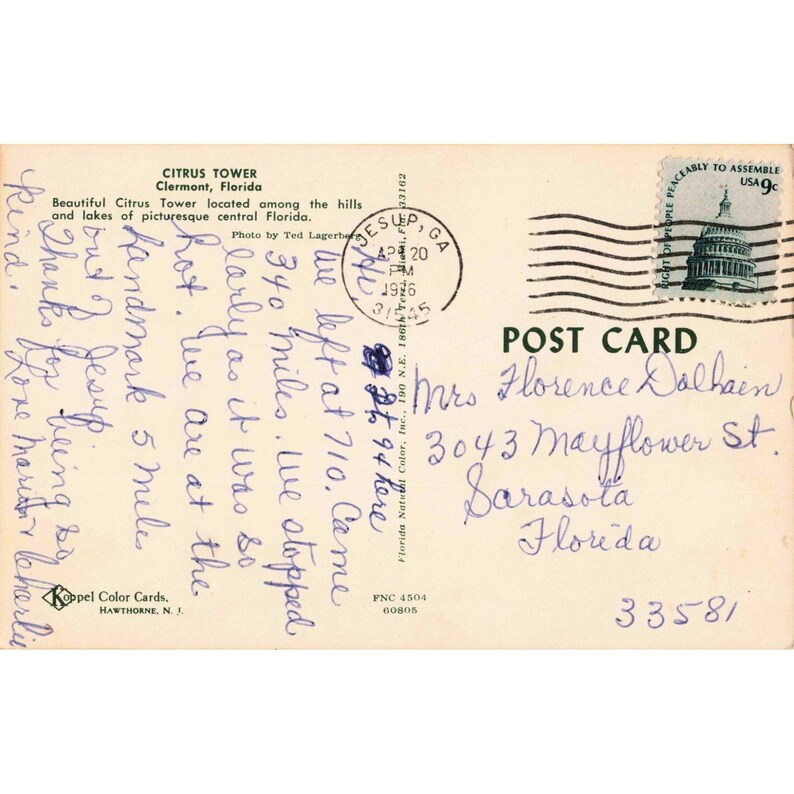 CITRUS TOWER
Clermont, Florida
Beautiful Citrus Tower located among the hills
and lakes of picturesque central Florida.
Photo by Ted Lagerberg
Hi, 94 here
We left at 710. Came
340 miles. We stopped
early as it was so
hot. We are at the
Landmark 5 miles
out Jesup
Thanks for being so
kind.
Love Marion & Charlie
Koppel Color Cards,
HAWTHORNE, N. J.
FNC 4504
60805
Florida Natural Color, Inc., 190 N.E. 186th Terr., Miami, Fla. 33162
JESUP, GA
APR 20
PM
1976
31545
RIGHT OF PEOPLE PEACEABLY TO ASSEMBLE
USA 9c
POST CARD
Mrs Florence Dalhain
3043 Mayflower St.
Sarasota
Florida
33581